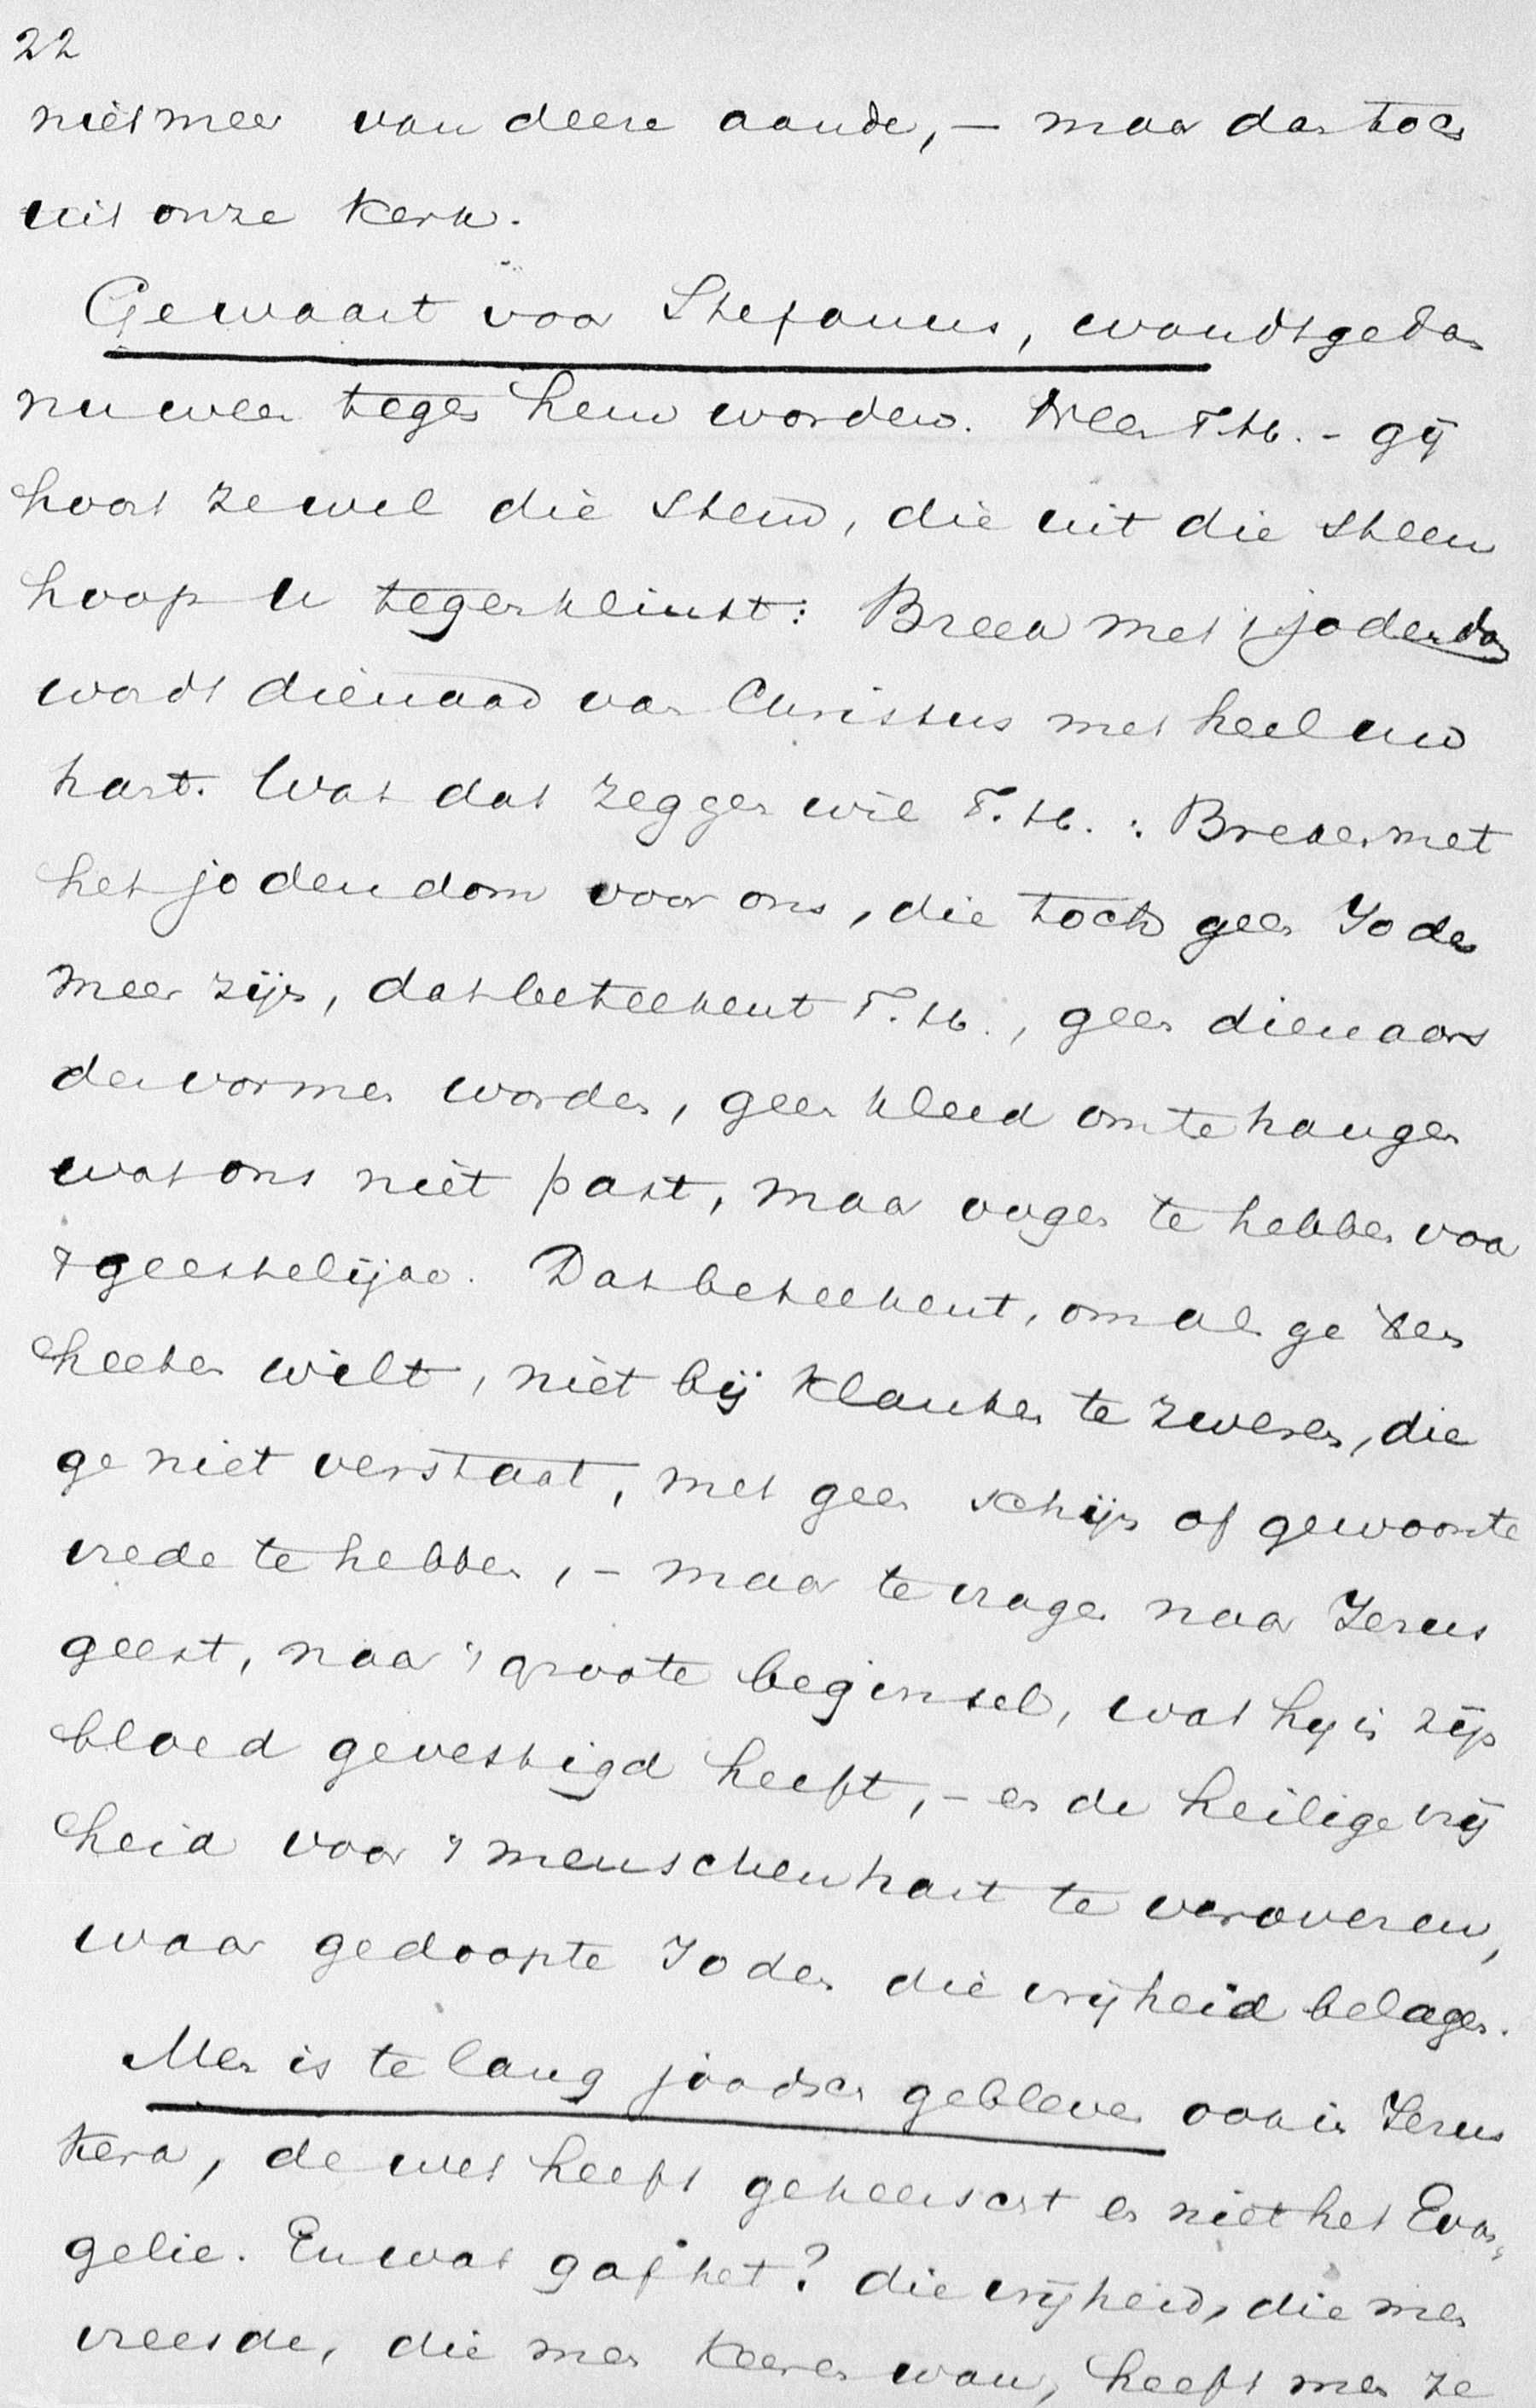 22
niet meer van deere aarde, – maar dan toch
uit onze kerk.
Gewaart voor Stefanus, wordt gedaan
nu weer tegen hem worden. M.T.H. – gij
hoort ze wel die stem, die uit die steen
hoop u tegenklinkt: Breek met 't jodendom
wordt dienaar van Christus met heel uw
hart. Wat dat zeggen wil T.H.: Breken met
het jodendom voor ons, die toch geen Joden
meer zijn, dat beteekent T.H., geen dienaars
der vormen worden, geen kleed om te hangen
wat ons niet past, maar oogen te hebben voor
't geestelijke. Dat beteekent, om als ge
heeten wilt, niet bij klanken te zweren, die
ge niet verstaat, met geen schijn of gewoonte
vrede te hebben, – maar te vragen naar Jezus
geest, naar 't groote beginsel, wat hij in zijn
bloed gevestigd heeft, – en de heilige vrij
heid voor 't menschenhart te veroveren,
waar gedoopte Joden die vrijheid belagen.
Men is te lang joodsch gebleven ook in Jezus
kerk, de wet heeft geheerscht en niet het Evan,
gelie. En wat gaf het? die vrijheid, die men
vreesde, die men keeren wou, heeft men ze